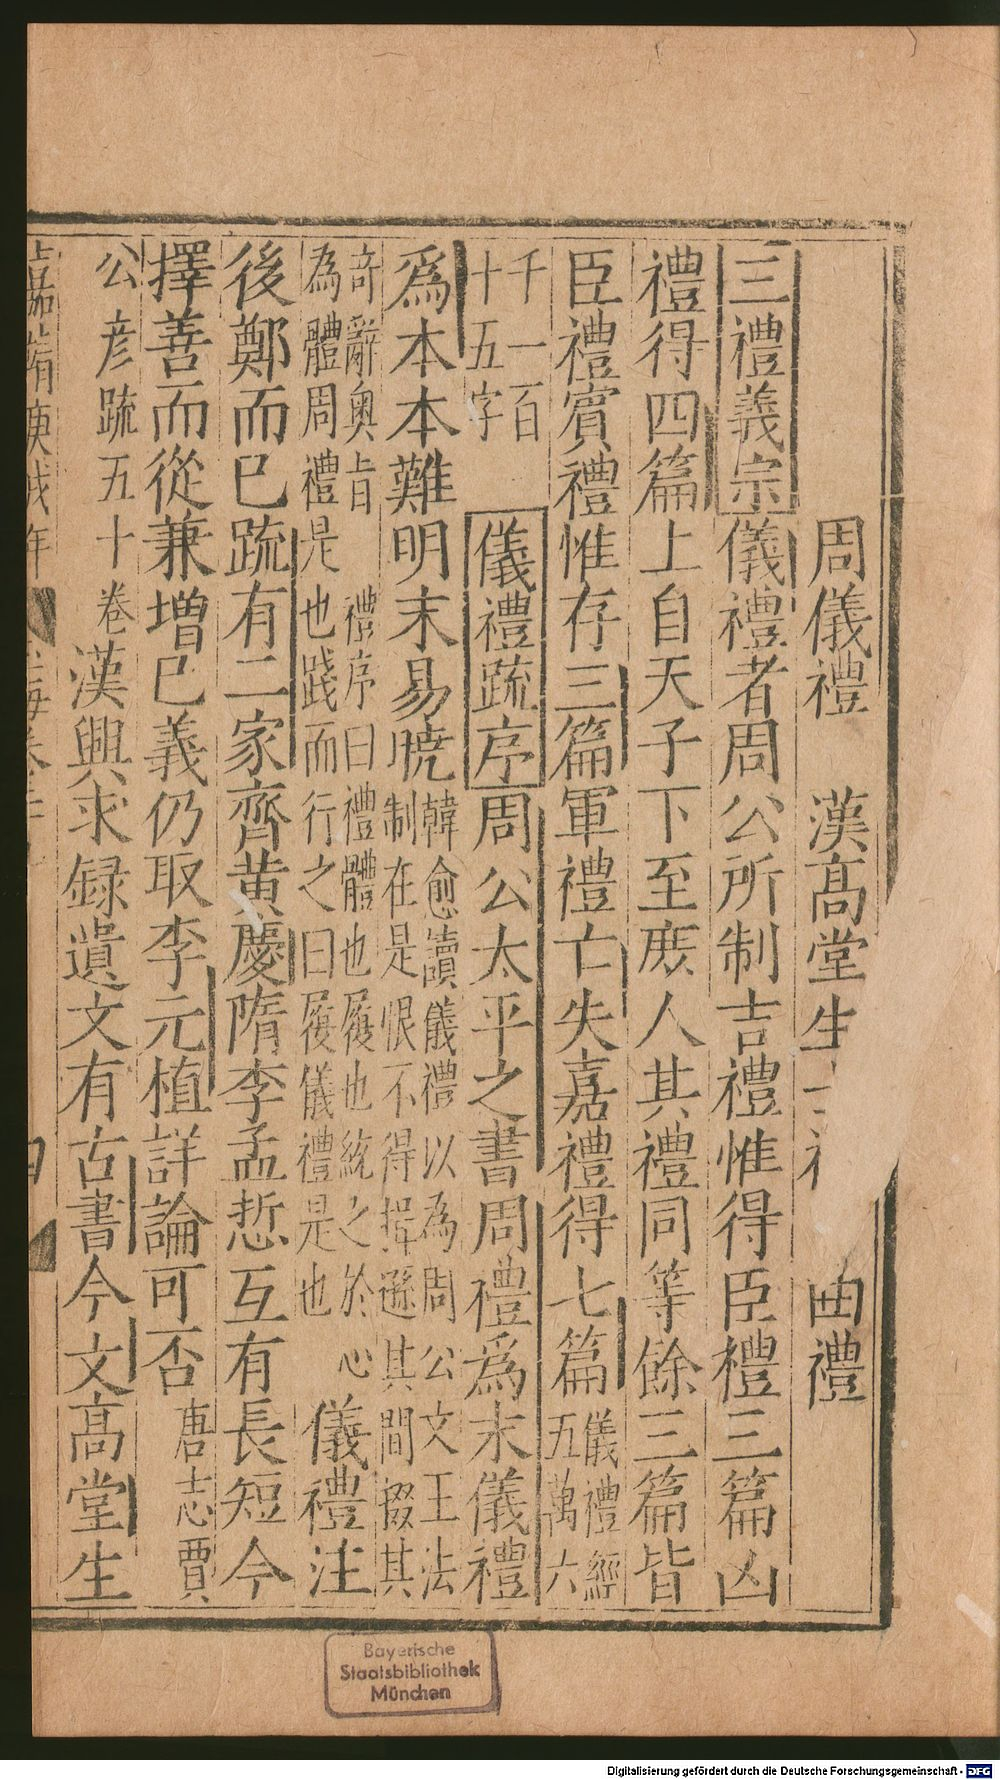 周儀禮　漢高堂生　曲禮
三禮義宗儀禮者周公所制吉禮惟得臣禮三篇凶
禮得四篇上自天子下至庶人其禮同等餘三篇皆
臣禮賓禮惟存三篇軍禮亡失嘉禮得七篇儀禮經五萬六
千一百十五字　儀禮疏序周公太平之書周禮爲末儀禮
爲本本難明末易曉韓愈讀儀禮以為周公文王法制在是恨不得揖遜其間掇其
奇辭奧旨　禮序曰禮體也履也統之於心為體周禮是也踐而行之曰履儀禮是也　儀禮注
後鄭而已疏有二家齊黄慶隋李孟悊互有長短今
擇善而從兼增已義仍取李元植詳論可否唐志賈
公彦疏五十卷漢興求録遺文有古書今文高堂生
嘉靖庚戌年
Bayerische
Staatsbibliothek
München
Digitalisierung gefördert durch die Deutsche Forschungsgemeinschaft - DFG